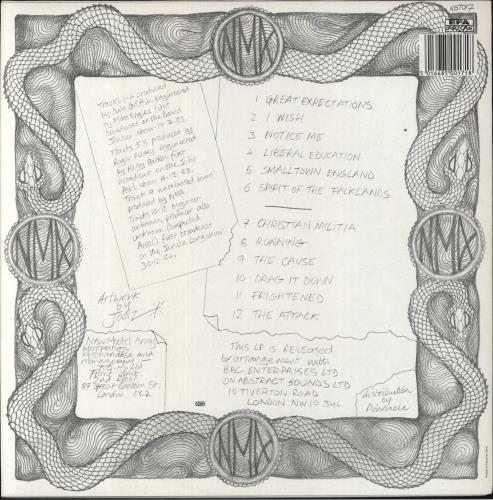 NMA
ABT017
EFA
5 016485 001718
Tracks 1-4 produced
by Dale Griffin, engineered
by Mike Engles first
broadcast on the David
Jensen show 14.7.83.
Tracks 5-8 produced by
Roger Pusey, engineered
by first
broadcast on the John
Peel show 14.12.83.
Track 9 unreleased demo
produced by NMA.
Tracks 10-12 engineer
unknown, producer also
unknown (suspected
first broadcast
on the Janice Long show
30.12.
Artwork
by
Joolz
1 GREAT EXPECTATIONS
2 I WISH
3 NOTICE ME
4 LIBERAL EDUCATION
5 SMALLTOWN ENGLAND
6 SPIRIT OF THE FALKLANDS
7 CHRISTIAN MILITIA
8 RUNNING
9 THE CAUSE
10 DRAG IT DOWN
11 FRIGHTENED
12 THE ATTACK
NMA
NMA
New Model Army
Information
Merchandise and
Management -
2nd floor
87 Great Eastern St.
London EC2
THIS LP IS RELEASED
by arrangement with
BBC ENTERPRISES LTD
ON ABSTRACT SOUNDS LTD
10 TIVERTON ROAD
LONDON NW10 3HL
distribution
by
Pinnacle
NMA